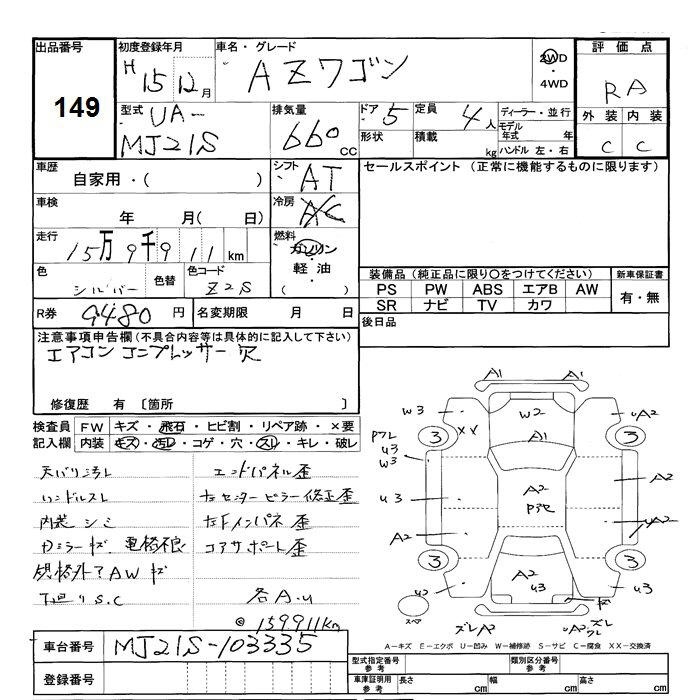 出品番号
149
初度登録年月
H 15 12月
車名・グレード
AZワゴン
2WD
・4WD
評価点
RA
外装 内装
C C
型式 UA-
MJ21S
排気量
660cc
ドア 5
定員 4人
形状
積載 kg
ディーラー・並行
モデル年式 年
ハンドル 左・右
車歴
自家用・( )
シフト AT
セールスポイント (正常に機能するものに限ります)
車検
年 月( 日)
冷房 AC
走行
15万9千911km
燃料
ガソリン
・
軽油
・
( )
色 シルバー
色替
色コード Z2S
装備品(純正品に限り○をつけてください)
新車保証書
PS PW ABS エアB AW
SR ナビ TV カワ
有・無
R券 9480円
名変期限 月 日
後日品
注意事項申告欄(不具合内容等は具体的に記入して下さい)
エアコンコンプレッサー欠
修復歴 有 〔箇所 〕
検査員 FW キズ・飛石・ヒビ割・リペア跡・×要
記入欄 内装 キズ・汚レ・コゲ・穴・スレ・キレ・破レ
天バリ汚レ
ハンドルスレ
内装シミ
Dミラーキズ 電格不良
規格外アAWキズ
下廻りS.C
エンドパネル歪
左センターピラー修正歪
左Fインパネ歪
コアサポート歪
各A.U
◎159911km
A1 A1
W3 W2 A2
XX A1
3 3
U3
W3
U3 A2 A2
A2 UA2
3 3
A2 U3
U2 U3
スペア
ズレA2 A2
A-キズ E-エクボ U-凹み W-補修跡 S-サビ C-腐食 XX-交換済
車台番号 MJ21S-103335
登録番号
型式指定番号 参考
類別区分番号 参考
車庫証明用 参考
長さ cm 幅 cm 高さ cm